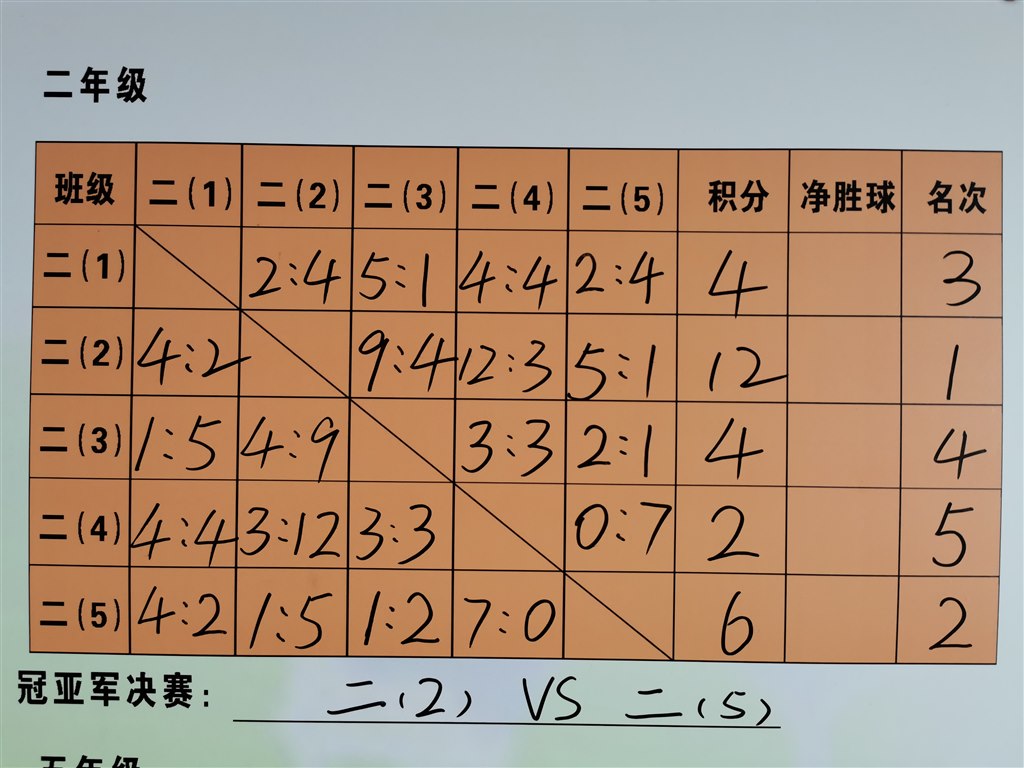 二年级
班级 二(1) 二(2) 二(3) 二(4) 二(5) 积分 净胜球 名次
二(1) 2:4 5:1 4:4 2:4 4 3
二(2) 4:2 9:4 12:3 5:1 12 1
二(3) 1:5 4:9 3:3 2:1 4 4
二(4) 4:4 3:12 3:3 0:7 2 5
二(5) 4:2 1:5 1:2 7:0 6 2
冠亚军决赛: 二(2) VS 二(5)
五年级